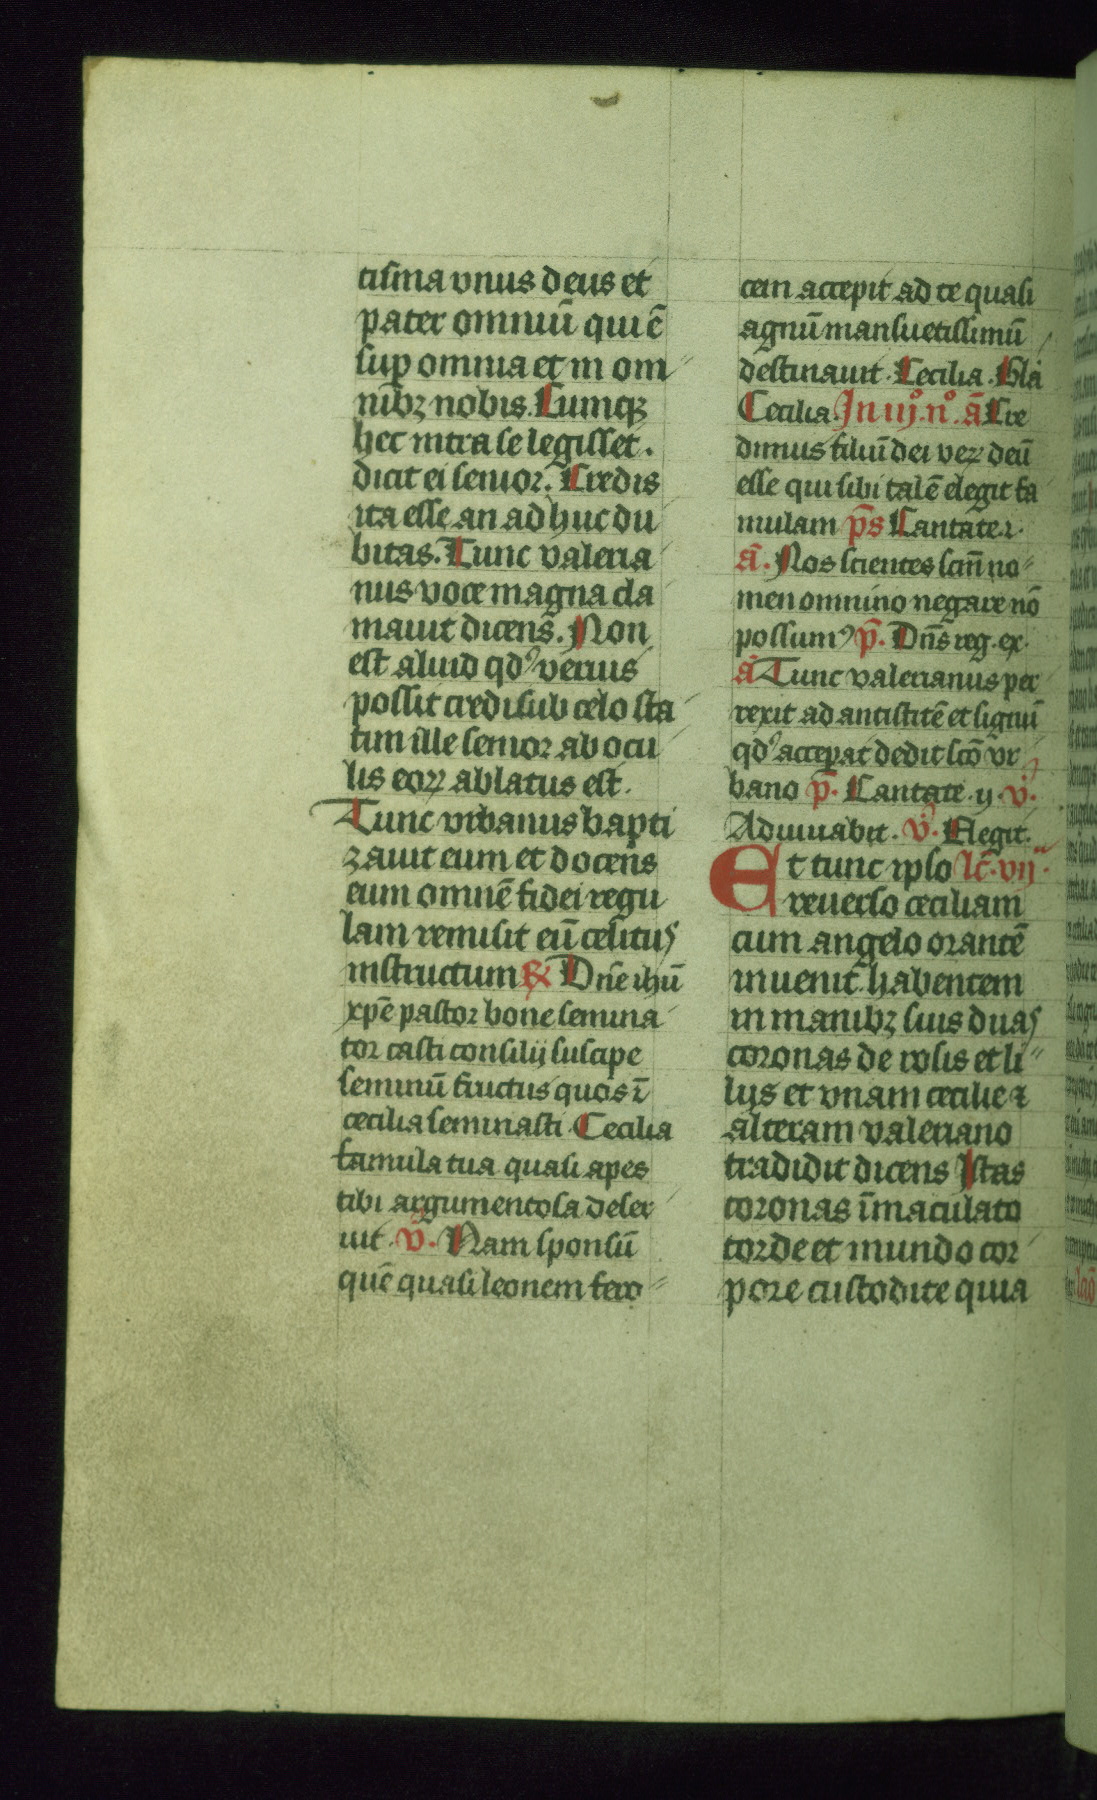 tisma vnus deus et
pater omniū qui ē
sup omnia et in om
nibꝫ nobis. Cumqꝫ
hec intra se legisset.
dicit ei senior. Credis
ita esse an adhuc du
bitas. Tunc valeria
nus voce magna cla
mauit dicens. Non
est aliud qd' verius
possit credi sub celo sta
tim ille senior ab ocu
lis eoꝝ ablatus est.
Tunc vrbanus bapti
zauit eum et docens
eum omnē fidei regu
lam remisit eū celitus
instructum ℟ Dn̄e ihū
xp̄e pastor bone semina
tor casti consilij suscipe
seminū fructus quos ī
cecilia seminasti Cecilia
famula tua quasi apes
tibi argumentosa deser
uit. v̄. Nam sponsū
quē quasi leonem fero
cem accepit ad te quasi
agnū mansuetissimū
destinauit. Cecilia. Gl̄a
Cecilia. In iijº. nº. ā Cre
dimus filiū dei veꝝ deū
esse qui sibi talē elegit fa
mulam p̄s Cantate. i.
ā. Nos scientes scm̄ no
men omnino negare nō
possumꝰ p̄. Dn̄s reg. ex.
ā Tunc valerianus per
rexit ad antistitē et signū
qd' acceperat dedit scō vr
bano p̄. Cantate. ij. v̄.
Adiuuabit. v̄. Elegit.
Et tunc ipso lc̄. vij.
reuerso ceciliam
cum angelo orantē
inuenit habentem
in manibꝫ suis duas
coronas de rosis et li
lijs et vnam cecilie ⁊
alteram valeriano
tradidit dicens Istas
coronas īmaculato
corde et mundo cor
pore custodite quia